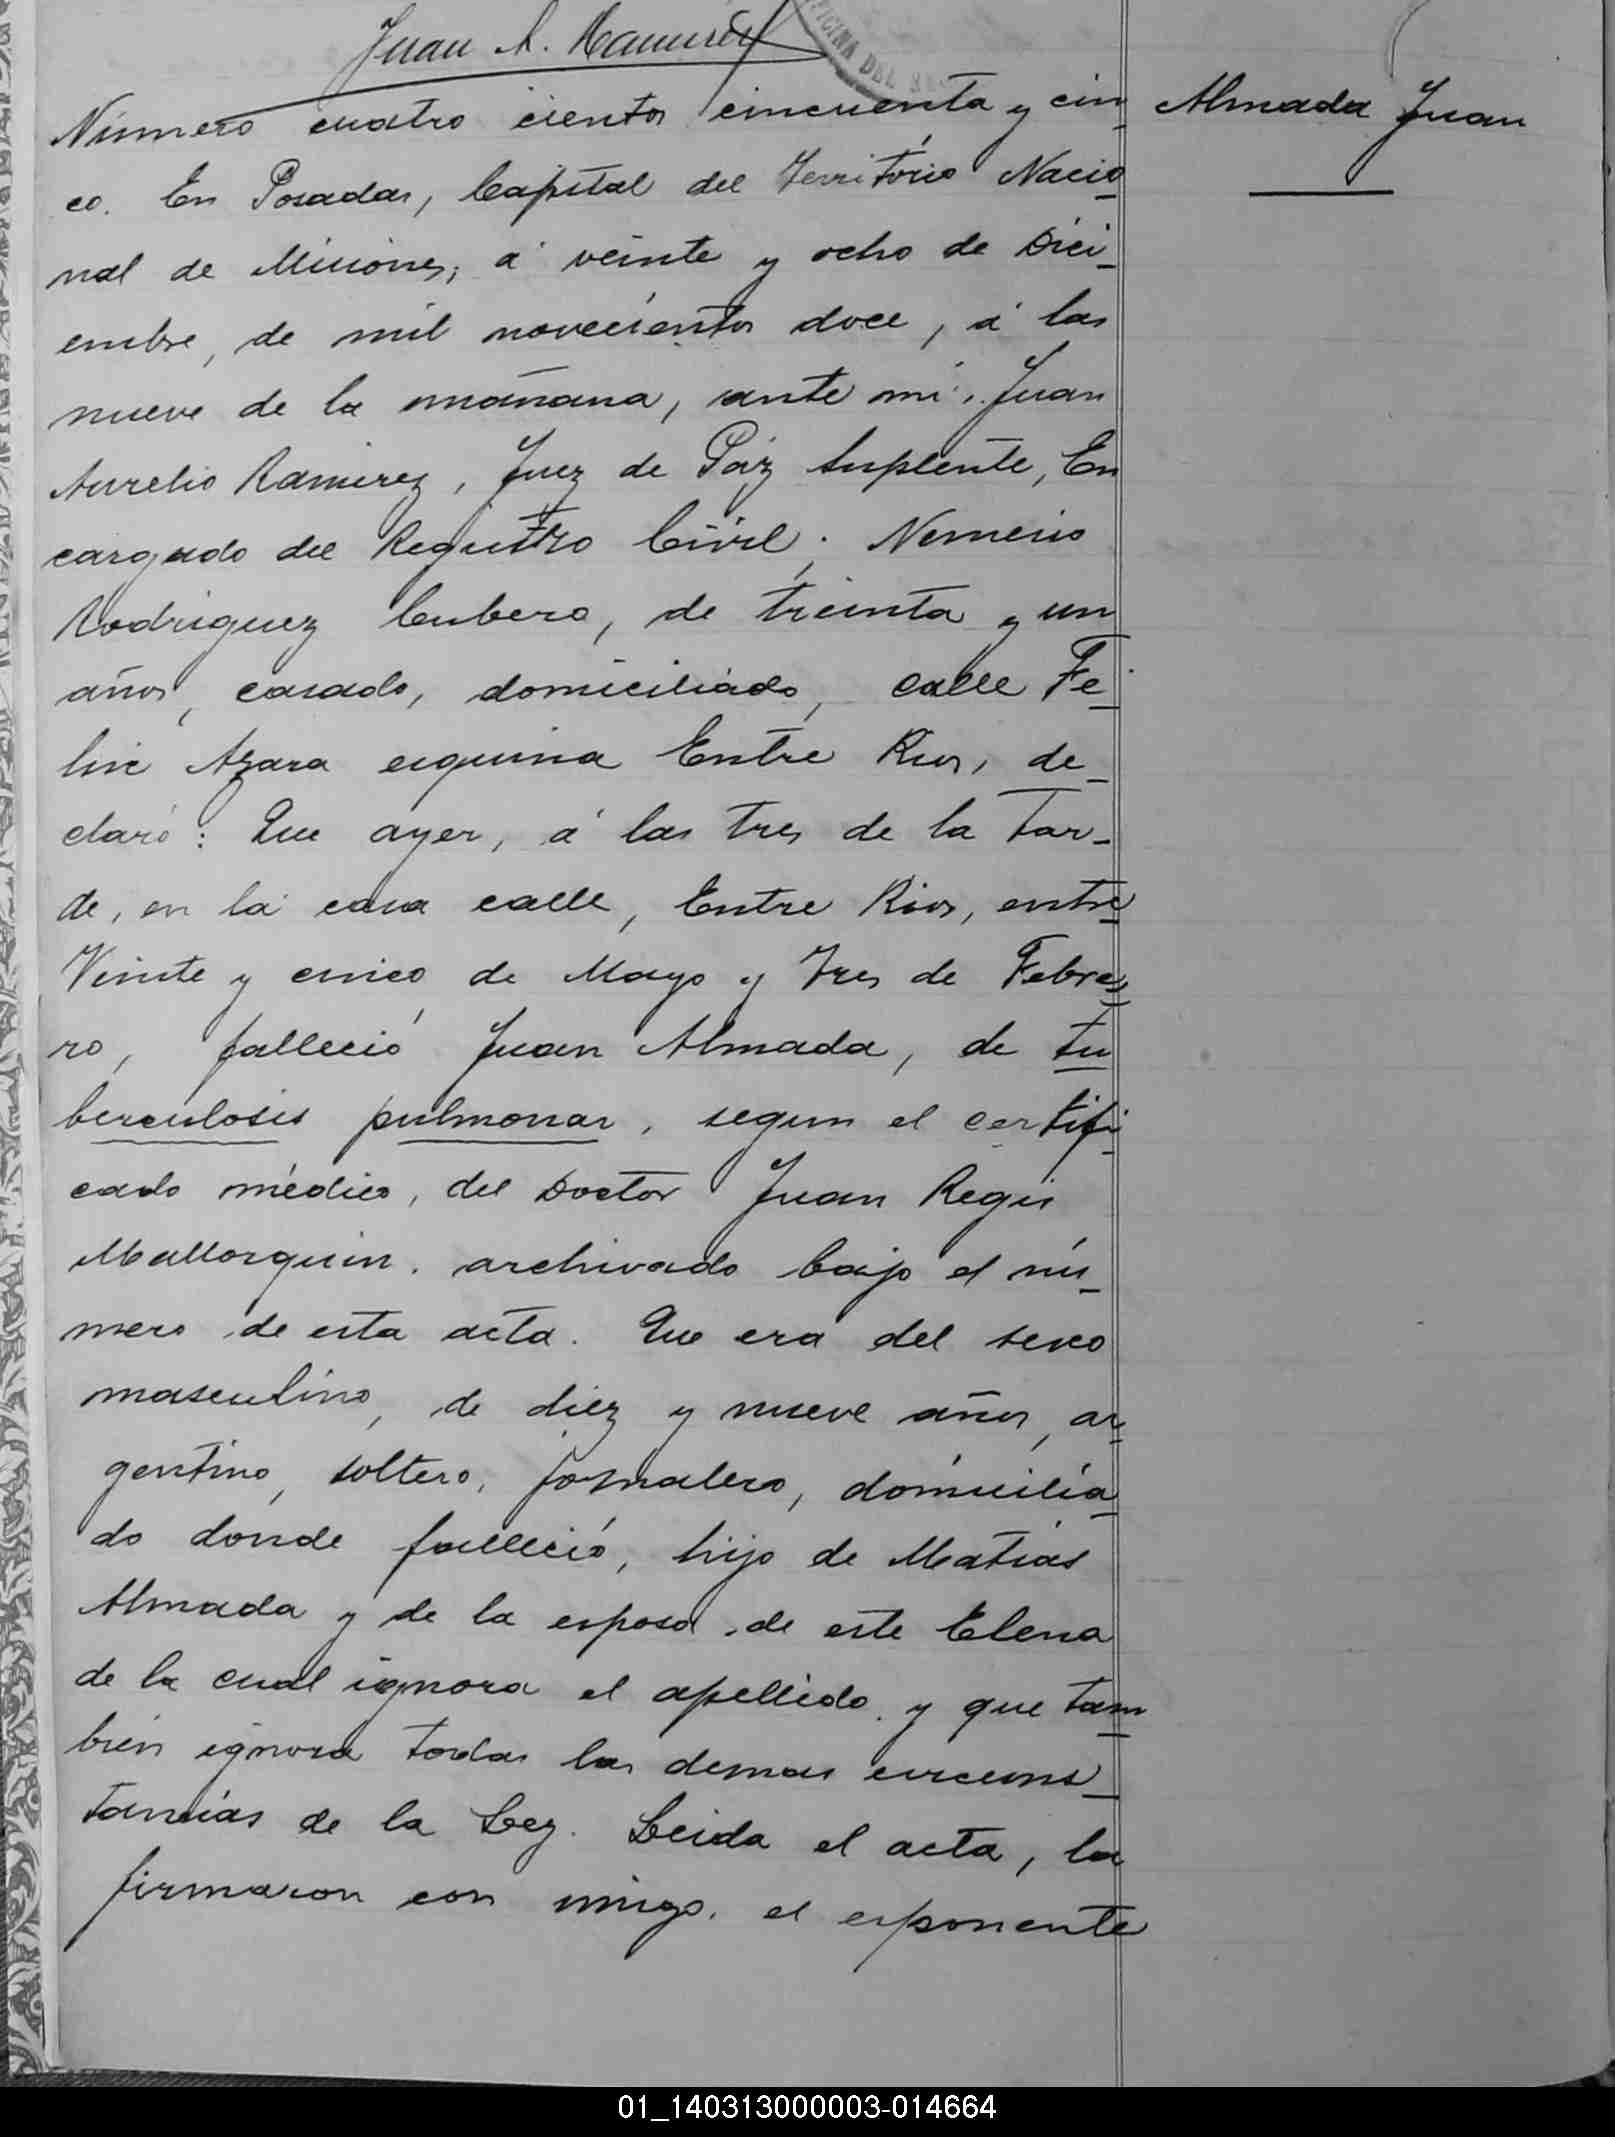 Juan A. Ramirez
OFICINA DEL
Almada Juan
Número cuatro cientos cincuenta y cin_
co. En Posadas, Capital del Territorio Nacio_
nal de Misiones, á veinte y ocho de Dici_
embre, de mil novecientos doce, á las
nueve de la mañana, ante mi, Juan
Aurelio Ramirez, Juez de Paz Suplente, En
cargado del Registro Civil; Nemesio
Rodriguez Cubero, de treinta y un
años, casado, domiciliado, calle Fe_
lix Azara esquina Entre Rios, de_
claró: Que ayer, á las tres de la tar_
de, en la casa calle, Entre Rios, entre
Veinte y cinco de Mayo y Tres de Febre_
ro, falleció Juan Almada, de tu
berculosis pulmonar, segun el certifi_
cado médico, del Doctor Juan Regis
Mallorquin, archivado bajo el nú_
mero de esta acta. Que era del sexo
masculino, de diez y nueve años, ar_
gentino, soltero, jornalero, domicilia_
do donde falleció, hijo de Matias
Almada y de la esposa de este Elena
de la cual ignora el apellido, y que tam_
bién ignora todas las demas circuns_
tancias de la Ley. Leida el acta, la
firmaron con migo, el esponente
01_140313000003-014664